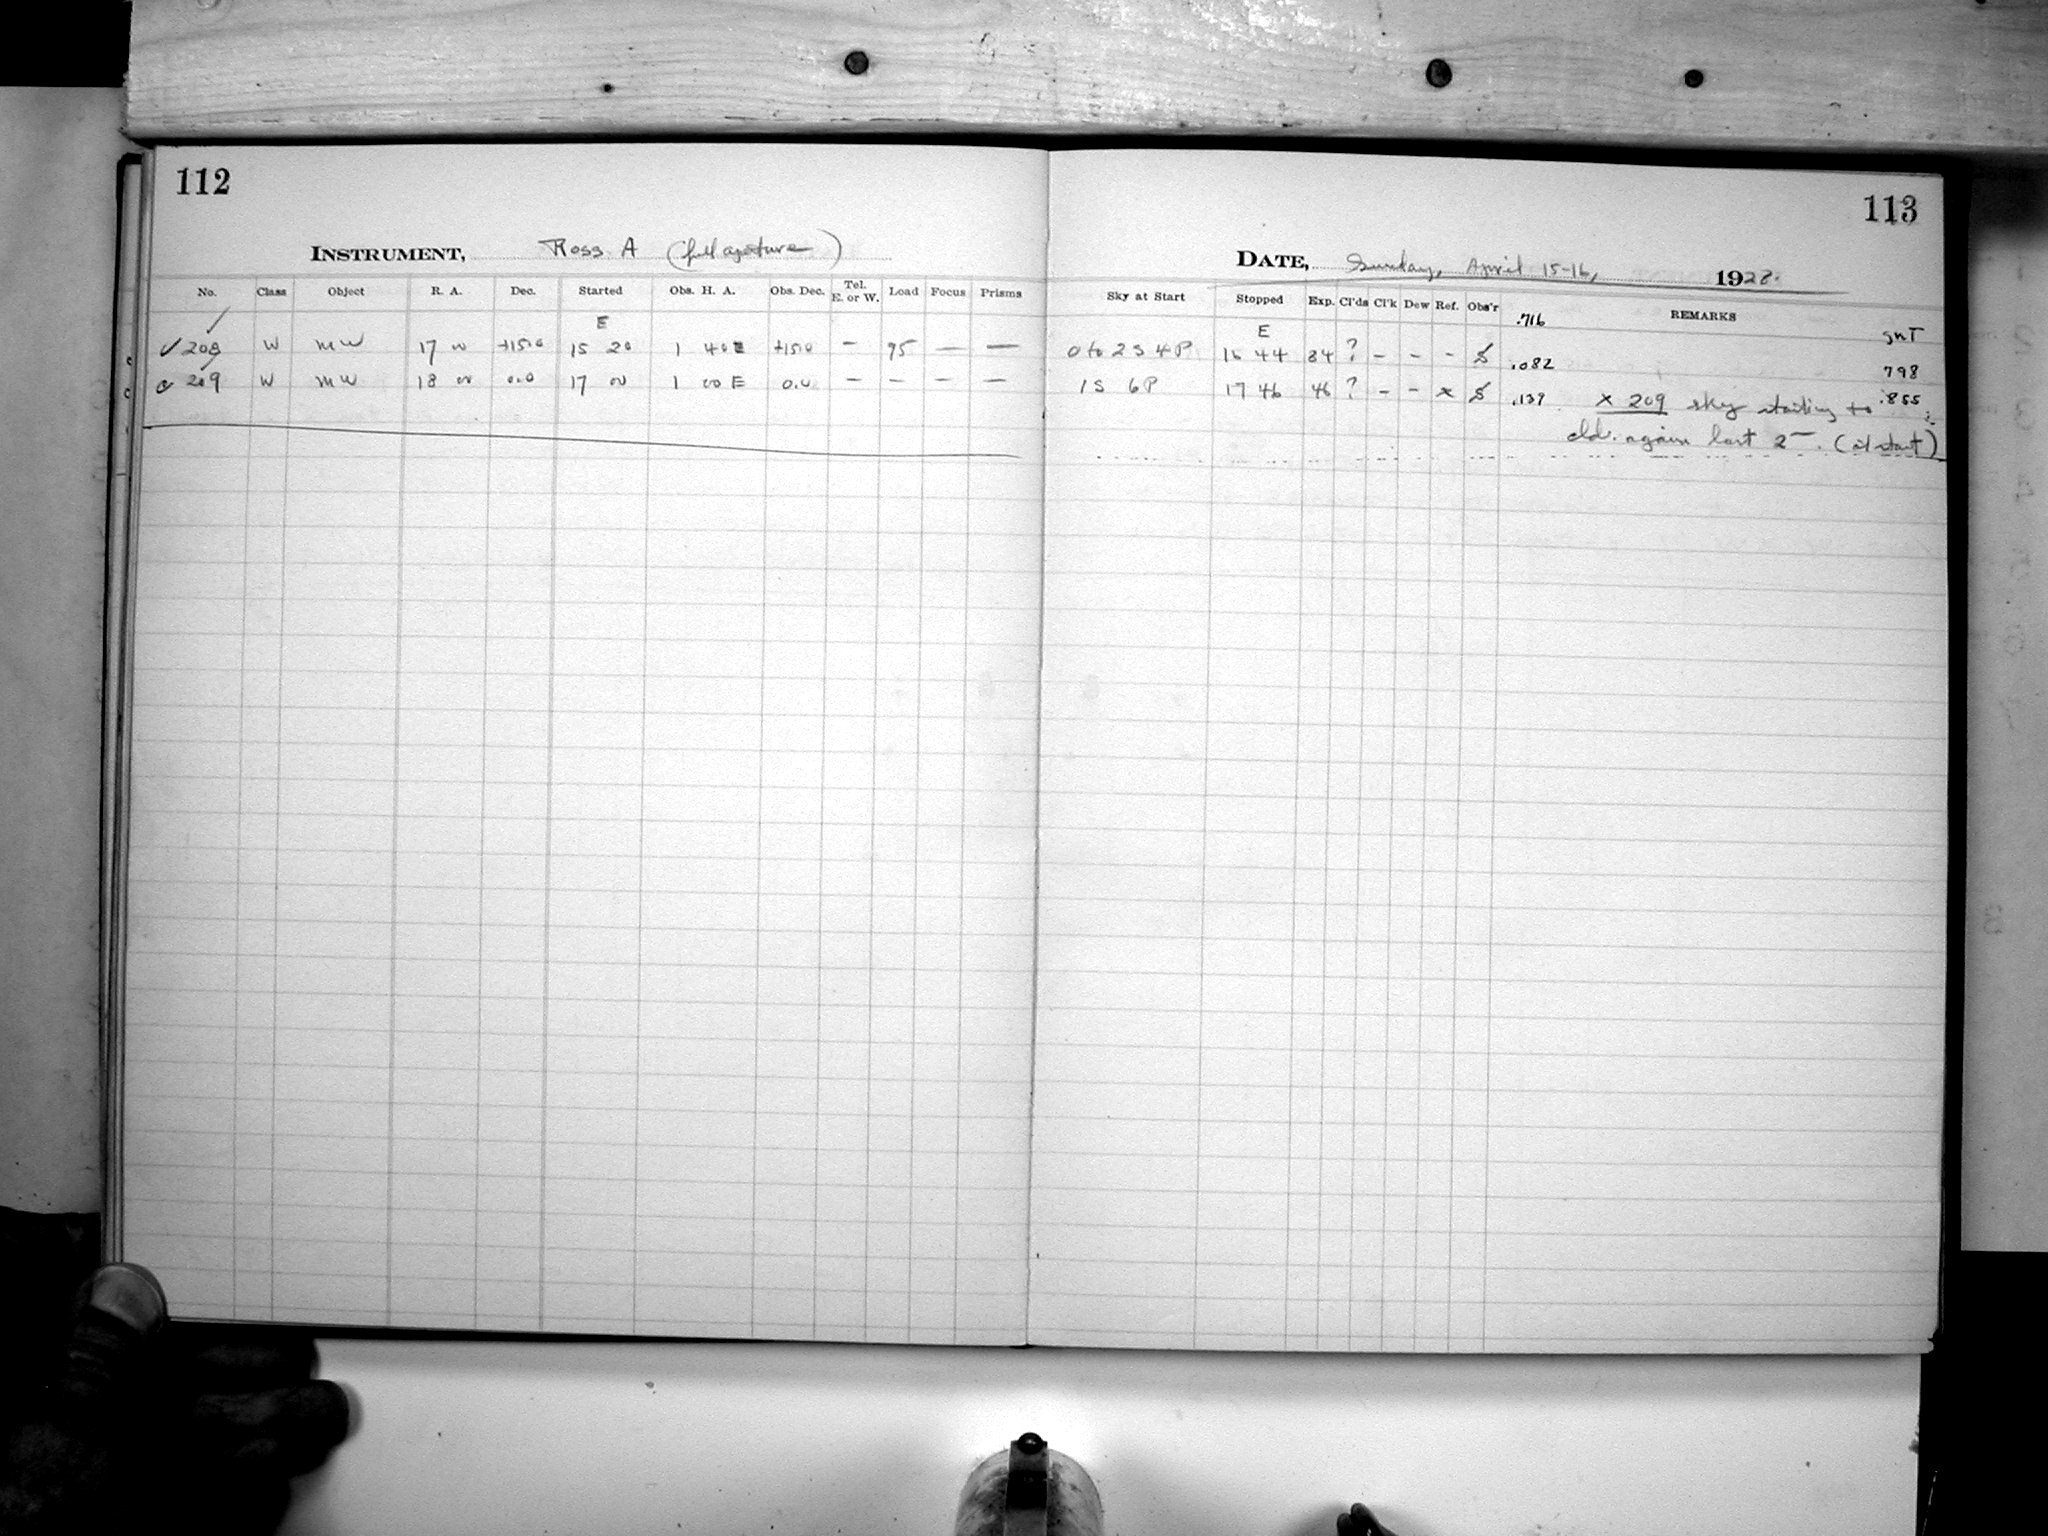 112
113
INSTRUMENT, Ross A (full aperture)
DATE, Sunday, April 15-16, 1928.
No. Class Object R. A. Dec. Started Obs. H. A. Obs. Dec. Tel. E. or W. Load Focus Prisms Sky at Start Stopped Exp. Cl'ds Cl'k Dew Ref. Obs'r .716 REMARKS
E E GMT
208 W MW 17 00 +15.0 15 20 1 40 E +15.0 — 95 — — 0 to 2 S 4 P 16 44 84 ? - - - .082 798
209 W MW 18 00 0.0 17 00 1 00 E 0.0 — — — — 1 S 6 P 17 46 46 ? - - x .139 .855
x 209 sky starting to
cld. again last 2 — . (at start)